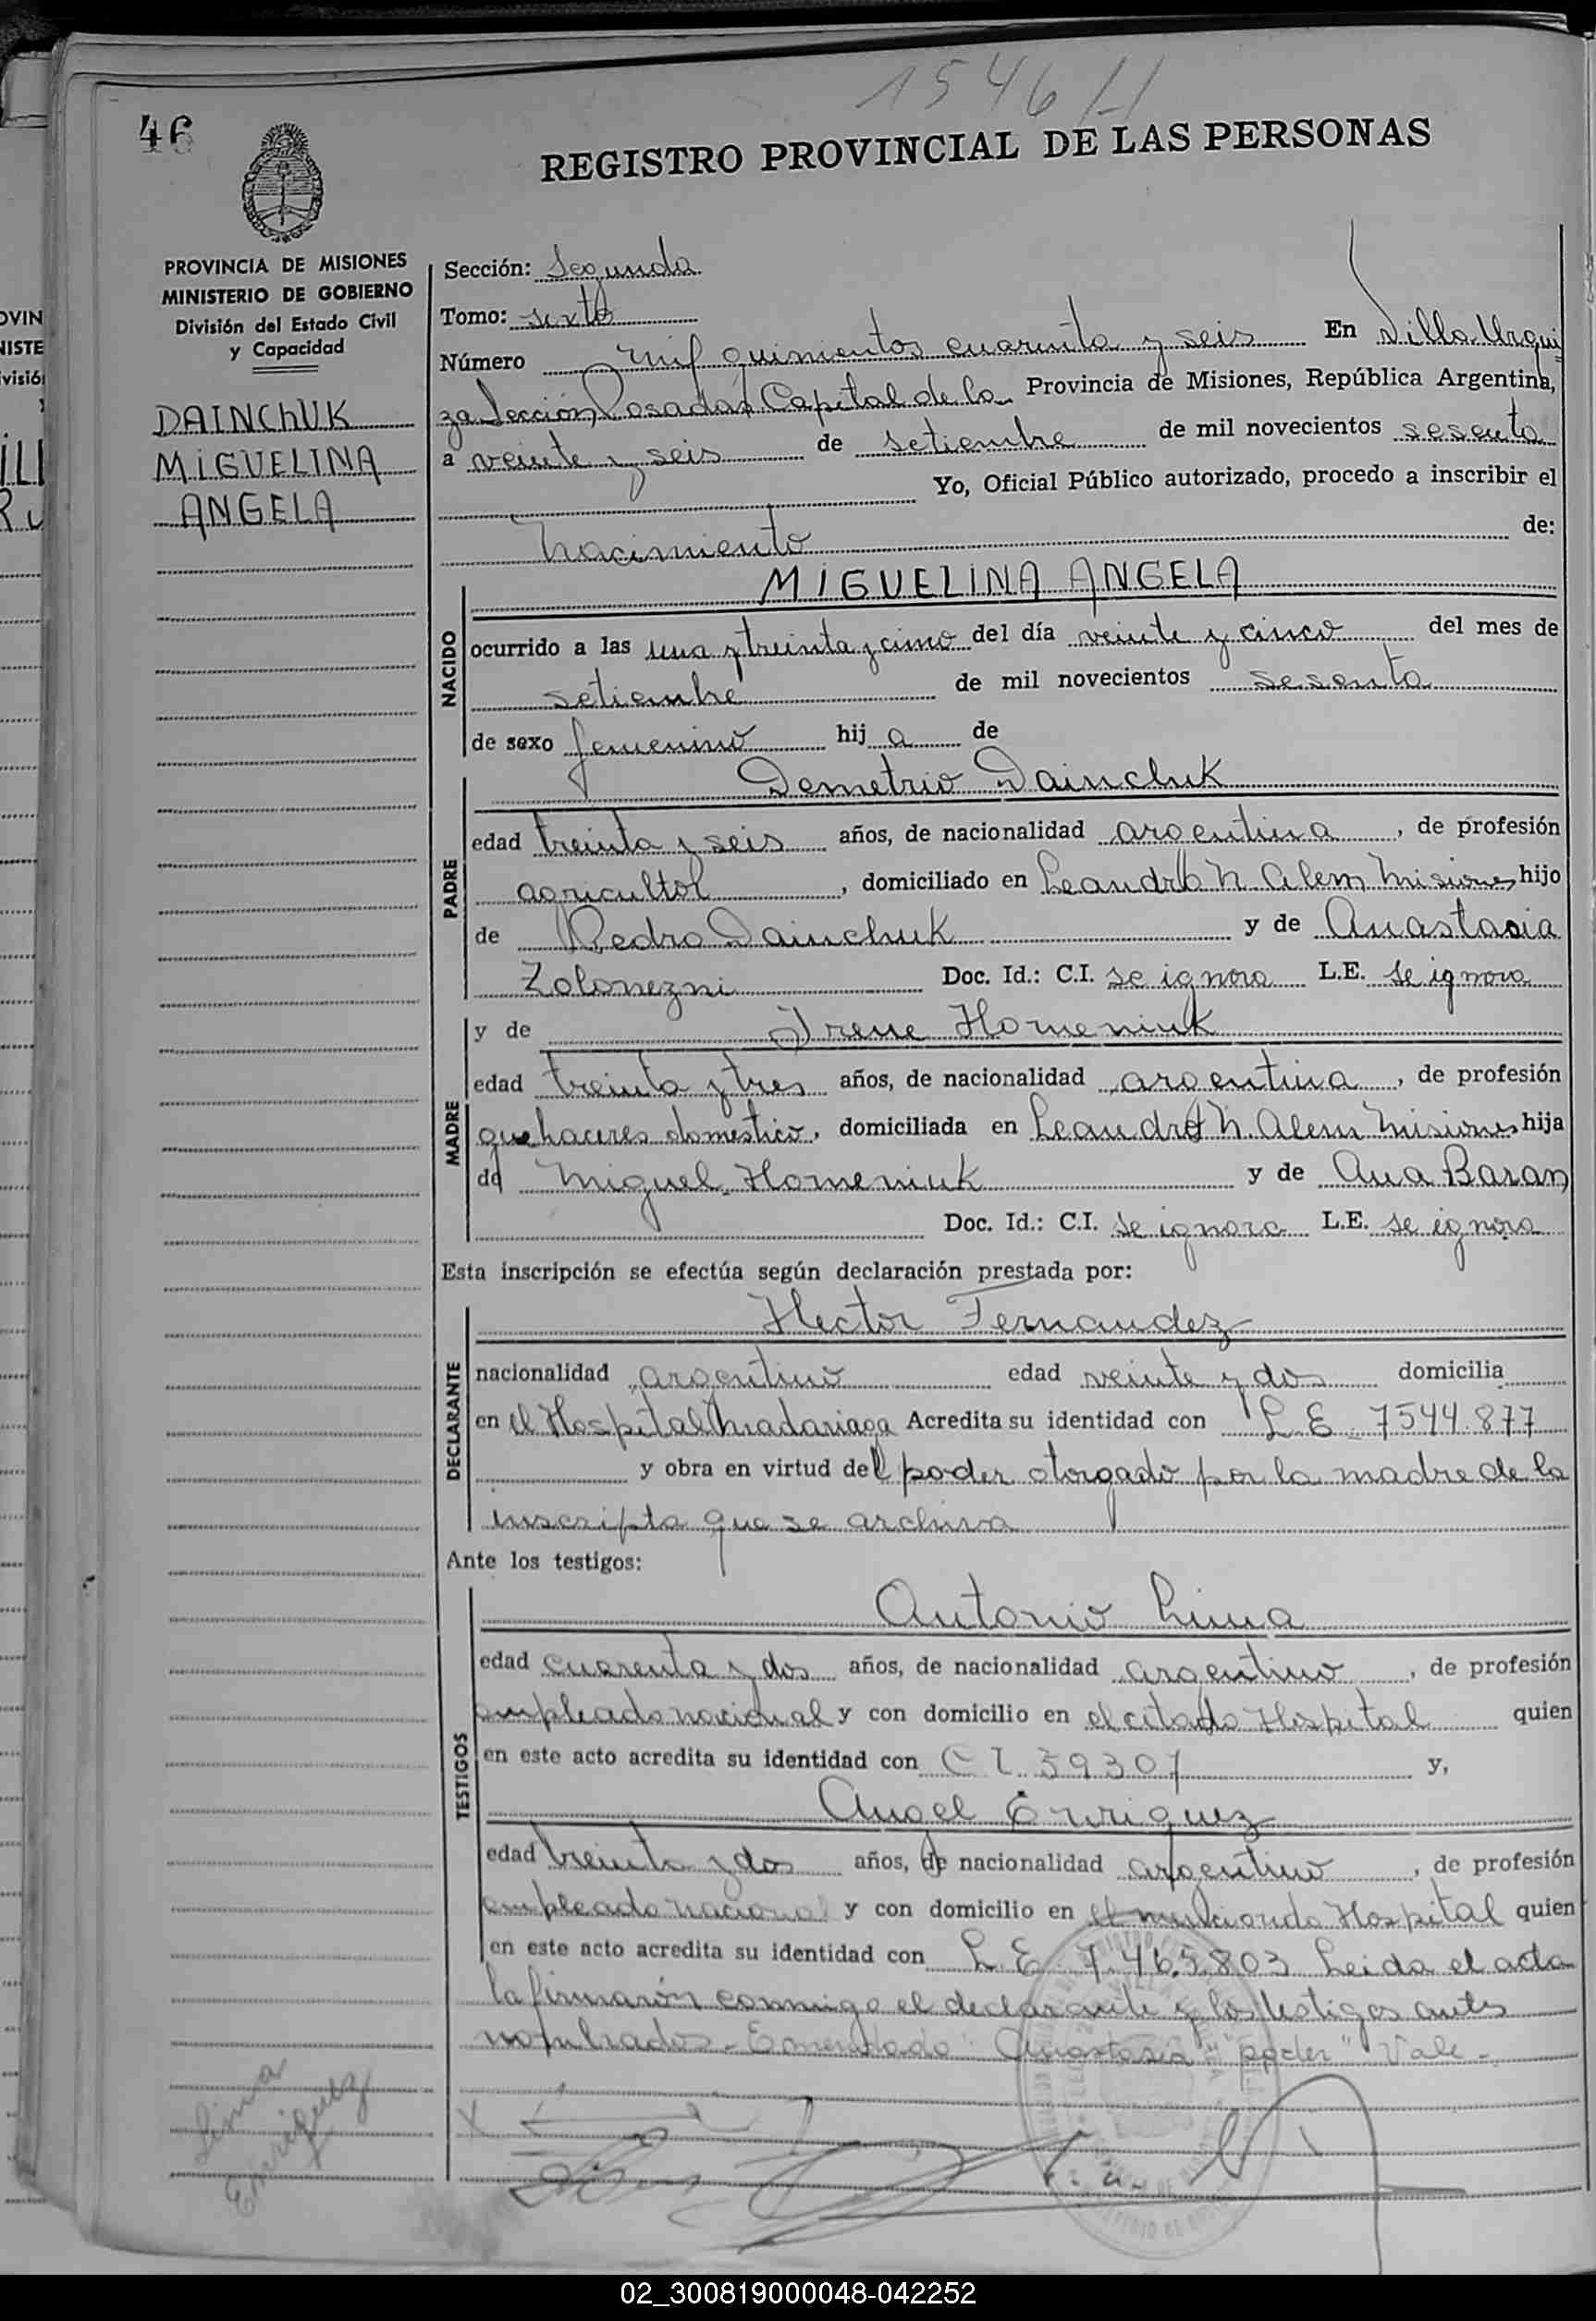 1546
46
REGISTRO PROVINCIAL DE LAS PERSONAS
PROVINCIA DE MISIONES
MINISTERIO DE GOBIERNO
División del Estado Civil
y Capacidad
DAINCHUK
MIGUELINA
ANGELA
Sección: Segunda
Tomo: sexto
Número mil quinientos cuarenta y seis En Villa Urqui
za Sección Posadas Capital de la Provincia de Misiones, República Argentina,
a veinte y seis de setiembre de mil novecientos sesenta
Yo, Oficial Público autorizado, procedo a inscribir el
Nacimiento de:
NACIDO
MIGUELINA ANGELA
ocurrido a las una y treinta y cinco del día veinte y cinco del mes de
setiembre de mil novecientos sesenta
de sexo femenino hij a de
PADRE
Demetrio Dainchuk
edad treinta y seis años, de nacionalidad argentina, de profesión
agricultor, domiciliado en Leandro N. Alem Misiones hijo
de Pedro Dainchuk y de Anastasia
Zolonezni Doc. Id.: C.I. se ignora L.E. se ignora
MADRE
y de Irene Homeniuk
edad treinta y tres años, de nacionalidad argentina, de profesión
quehaceres domestico, domiciliada en Leandro N. Alem Misiones hija
de Miguel Homeniuk y de Ana Baran
Doc. Id.: C.I. se ignora L.E. se ignora
Esta inscripción se efectúa según declaración prestada por:
DECLARANTE
Hector Fernandez
nacionalidad argentino edad veinte y dos domicilia
en el Hospital Madariaga Acredita su identidad con L E 7544.877
y obra en virtud del poder otorgado por la madre de la
inscripta que se archiva
Ante los testigos:
TESTIGOS
Antonio Lima
edad cuarenta y dos años, de nacionalidad argentino, de profesión
empleado nacional y con domicilio en el citado Hospital quien
en este acto acredita su identidad con C I 59307 y,
Angel Enriquez
edad treinta y dos años, de nacionalidad argentino, de profesión
empleado nacional y con domicilio en el mencionado Hospital quien
en este acto acredita su identidad con L. E. 7.465.803 Leida el acta
la firmaron conmigo el declarante y los testigos antes
nombrados.- Enmendado: Anastasia "poder" Vale.-
Lima
Enriquez
02_300819000048-042252